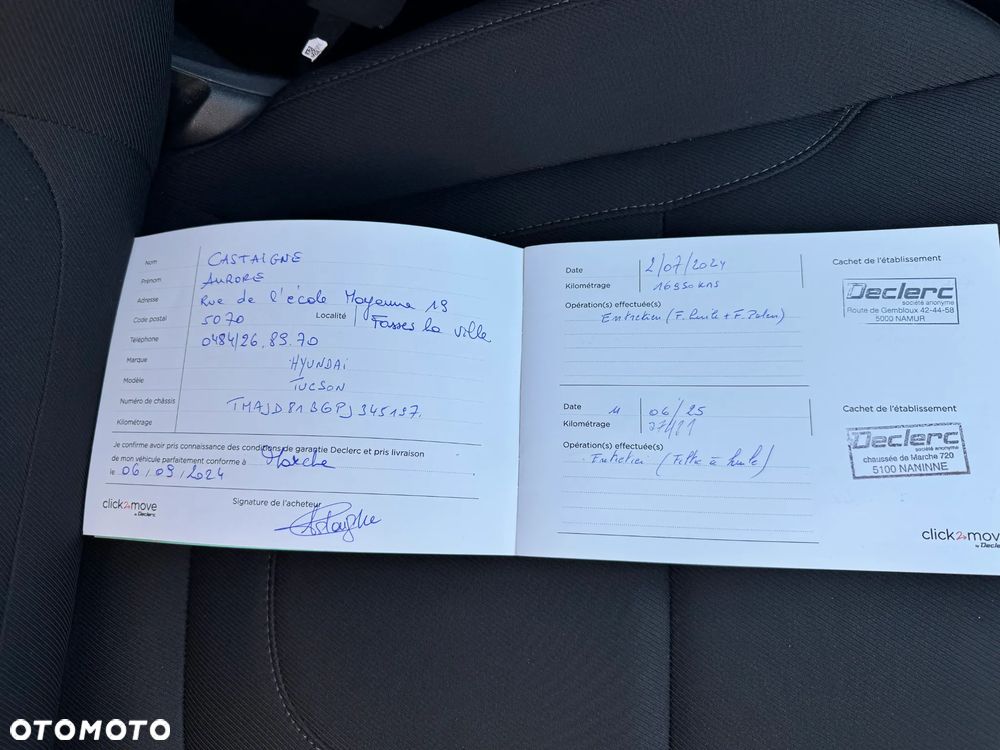 Nom CASTAIGNE
Prénom AURORE
Adresse Rue de l'école Moyenne 19
Code postal 5070 Localité Fosses la ville
Téléphone 0484/26.89.70
Marque HYUNDAI
Modèle TUCSON
Numéro de châssis TMAJD81BGPJ345197.
Kilométrage
Je confirme avoir pris connaissance des conditions de garantie Declerc et pris livraison
de mon véhicule parfaitement conforme à Marche
le 06/09/2024
Signature de l'acheteur
click2move
by Declerc
Date 2/07/2024
Kilométrage 16950 kms
Opération(s) effectuée(s)
Entretien (F. huile + F. Polen)
Cachet de l'établissement
Declerc
société anonyme
Route de Gembloux 42-44-58
5000 NAMUR
Date 11 06/25
Kilométrage
Opération(s) effectuée(s)
Entretien (Filtre à huile)
Cachet de l'établissement
Declerc
société anonyme
chaussée de Marche 720
5100 NANINNE
click2mov
by Decle
OTOMOTO